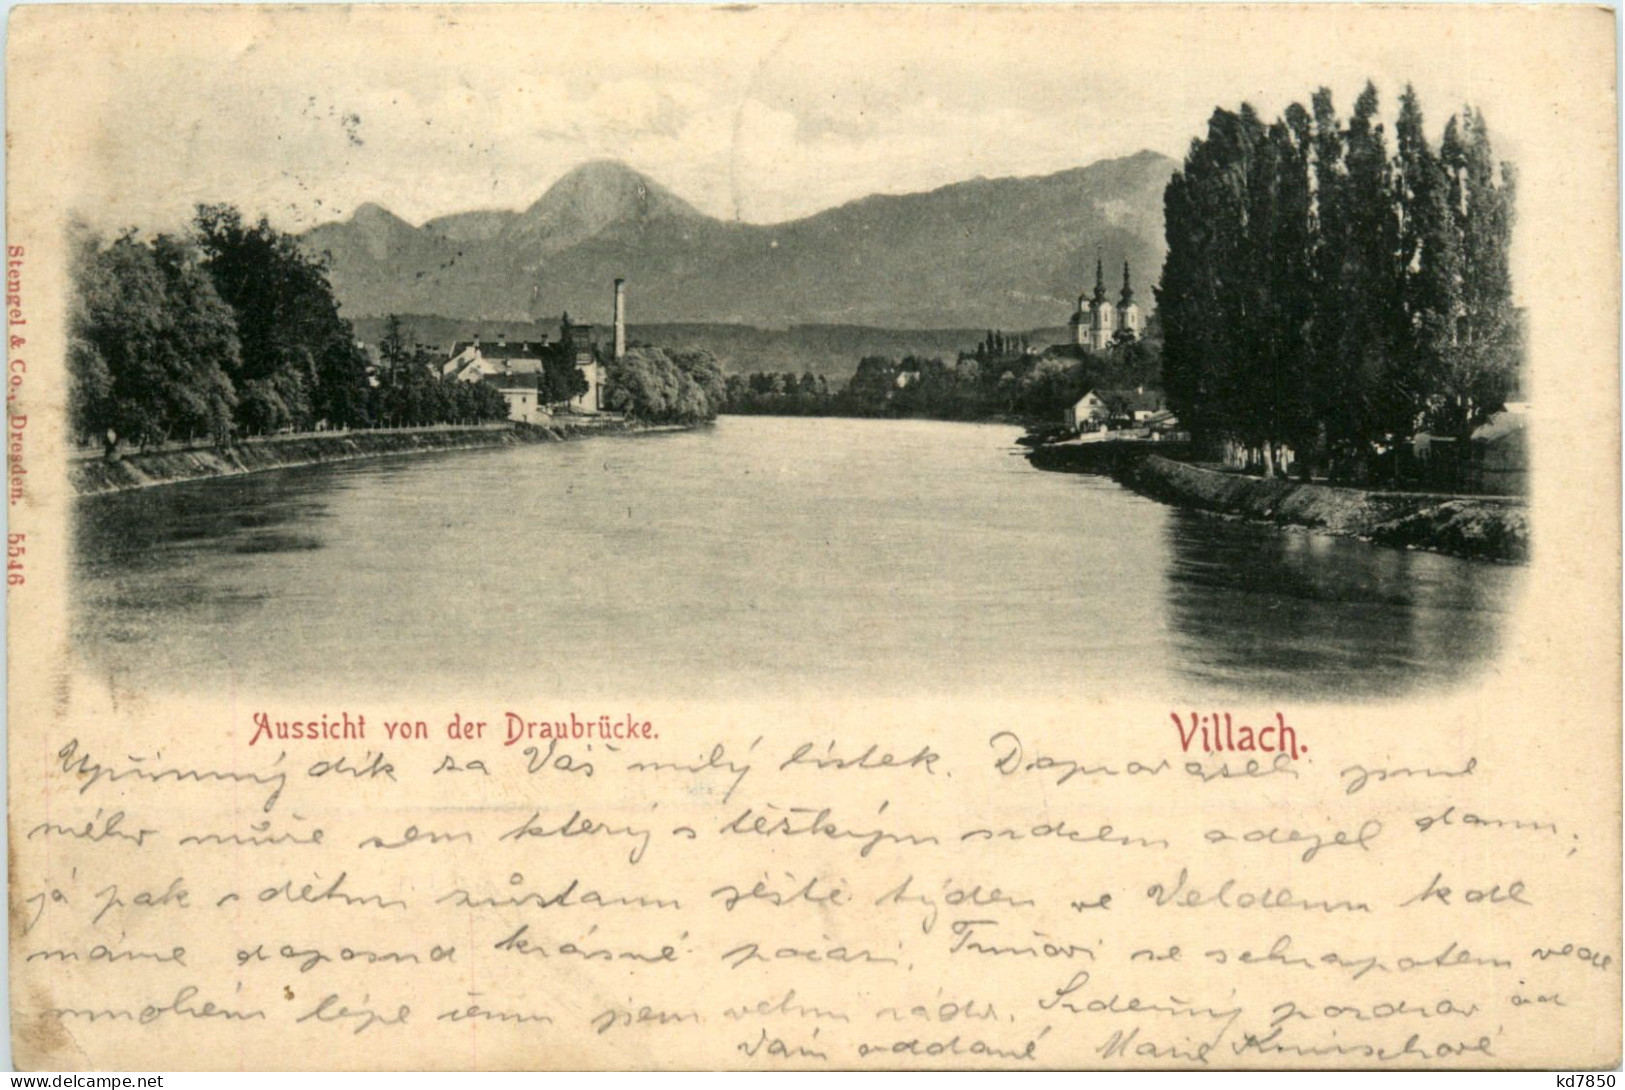 Stengel & Co., Dresden. 5546
Aussicht von der Draubrücke.
Villach.
Upřímný dík za Váš milý lístek. Doprovázeli jsme
mého muže sem který s těžkým srdcem odejel domu;
já pak s dětmi zůstanu ještě týden ve Veldenu kde
máme doposud krásné počasí.
se vede
mnohem lépe jsem velmi ráda. Srdečný pozdrav od
Vám oddané Marie
kd7850